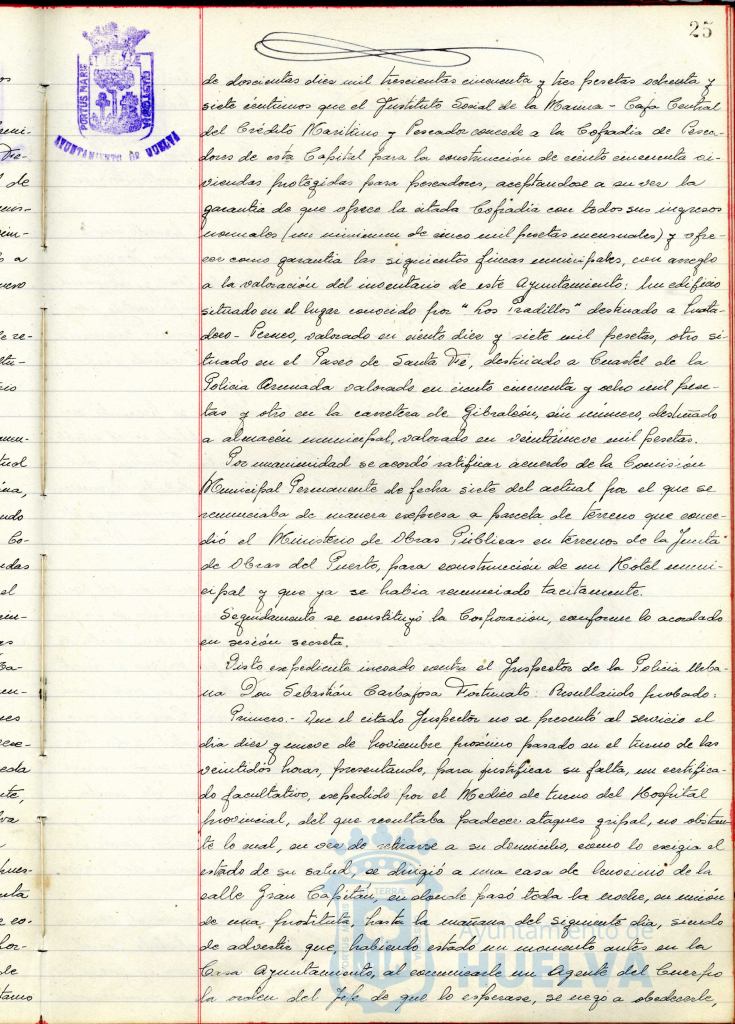 25
PORTUS MARIS
ET TERRAE
CUSTODIA
AYUNTAMIENTO DE HUELVA
de doscientas diez mil trescientas cincuenta y tres pesetas ochenta y
siete centimos que el Instituto Social de la Marina - Caja Central
del Crédito Maritimo y Pescador concede a la Cofradia de Pesca-
dores de esta Capital para la construcción de ciento cincuenta vi-
viendas protegidas para pescadores, aceptandose a su vez la
garantia de que ofrece la citada Cofradia con todos sus ingresos
normales (un minimum de cinco mil pesetas mensuales) y ofre-
cer como garantia las siguientes fincas municipales, con arreglo
a la valoración del inventario de este Ayuntamiento: Un edificio
situado en el lugar conocido por "Los Pradillos" destinado a Mata-
dero - Perneo, valorado en ciento diez y siete mil pesetas, otro si-
tuado en el Paseo de Santa Fe, destinado a Cuartel de la
Policia Armada valorado en ciento cincuenta y ocho mil pese-
tas y otro en la carretera de Gibraleón, sin número, destinado
a almacén municipal, valorado en veintinueve mil pesetas.
Por unanimidad se acordó ratificar acuerdo de la Comisión
Municipal Permanente de fecha siete del actual por el que se
renunciaba de manera expresa a parcela de terreno que conce-
dió el Ministerio de Obras Públicas en terrenos de la Junta
de Obras del Puerto, para construcción de un Hotel muni-
cipal y que ya se habia renunciado tacitamente.
Seguidamente se constituyó la Corporación, conforme lo acordado
en sesión secreta.
Visto expediente incoado contra el Inspector de la Policia Urba-
na Don Sebastián Carbajosa Fortunato: Resultando probado:
Primero.- Que el citado Inspector no se presentó al servicio el
dia diez y nueve de Noviembre próximo pasado en el turno de las
veintidos horas, presentando, para justificar su falta, un certifica-
do facultativo, expedido por el Medico de turno del Hospital
Provincial, del que resultaba padecer ataques gripal, no obstan-
te lo cual, en vez de retirarse a su domicilio, como lo exigia el
estado de su salud, se dirigió a una casa de lenocinio de la
calle Gran Capitán, en donde pasó toda la noche, en unión
de una prostituta, hasta la mañana del siguiente dia, siendo
de advertir que, habiendo estado un momento antes en la
Casa Ayuntamiento, al comunicarle un Agente del Cuerpo
la orden del Jefe de que lo esperase, se negó a obedecerle,
Ayuntamiento de
HUELVA